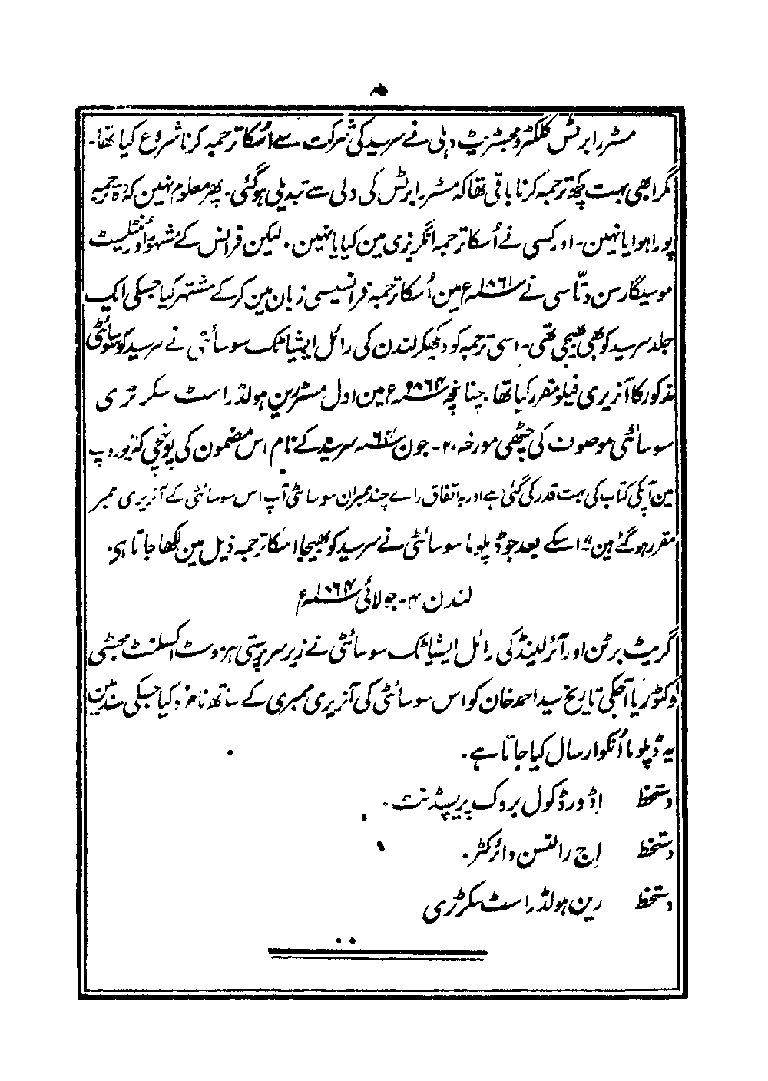 مسٹر رابرٹس کلکٹر و مجسٹریٹ دہلی نے سرسید کی شرکت سے اسکا ترجمہ کرنا شروع کیا تھا۔
مگر ابھی بہت کچھ ترجمہ کرنا باقی تھا کہ مسٹر رابرٹس کی دلی سے تبدیلی ہوگئی۔ پھر معلوم نہین کہ وہ ترجمہ
پورا ہوا یا نہین۔ اور کسی نے اُسکا ترجمہ انگریزی مین کیا یا نہین۔ لیکن فرانس کے مشہور اورنٹلیسٹ
موسیو گارسن دتاسی نے ۱۸۶۱ء مین اُسکا ترجمہ فرانسیسی زبان مین کرکے مشتہر کیا جسکی ایک
جلد سرسید کو بھی بھیجی تھی۔ اسی ترجمہ کو دیکھکر لندن کی رائل ایشیاٹک سوسائٹی نے سرسید کو سوسائٹی
مذکور کا آنریری فیلو مقرر کیا تھا۔ چنانچہ ۱۸۶۴ء مین اول مسٹر رین ہولڈ راسٹ سکرٹری
سوسائٹی موصوف کی چٹھی مورخہ ۲۰۔ جون ۶۴ء سرسید کے نام اس مضمون کی پہونچی کہ یوروپ
مین آپکی کتاب کی بہت قدر کی گئی ہے اور بہ اتفاق راے چند ممبران سوسائٹی آپ اس سوسائٹی کے آنریری ممبر
مقرر ہوگئے ہین " اسکے بعد جو ڈپلوما سوسائٹی نے سرسید کو بھیجا اسکا ترجمہ ذیل مین لکھا جاتا ہی۔
لندن ۴۔ جولائی ۱۸۶۴ء
گریٹ برٹن اور آئرلینڈ کی رائل ایشیاٹک سوسائٹی نے زیر سرپرستی ہر موسٹ اکسلنٹ مجسٹی
وکٹوریا آجکی تاریخ سید احمد خان کو اس سوسائٹی کی آنریری ممبری کے ساتھ نامزد کیا جسکی سند مین
یہ ڈپلوما اُنکو ارسال کیا جاتا ہے۔
دستخط اڈورڈ کول بروک پریسیڈنٹ۔
دستخط اچ رالنسن ڈائرکٹر۔
دستخط رین ہولڈ راسٹ سکرٹری